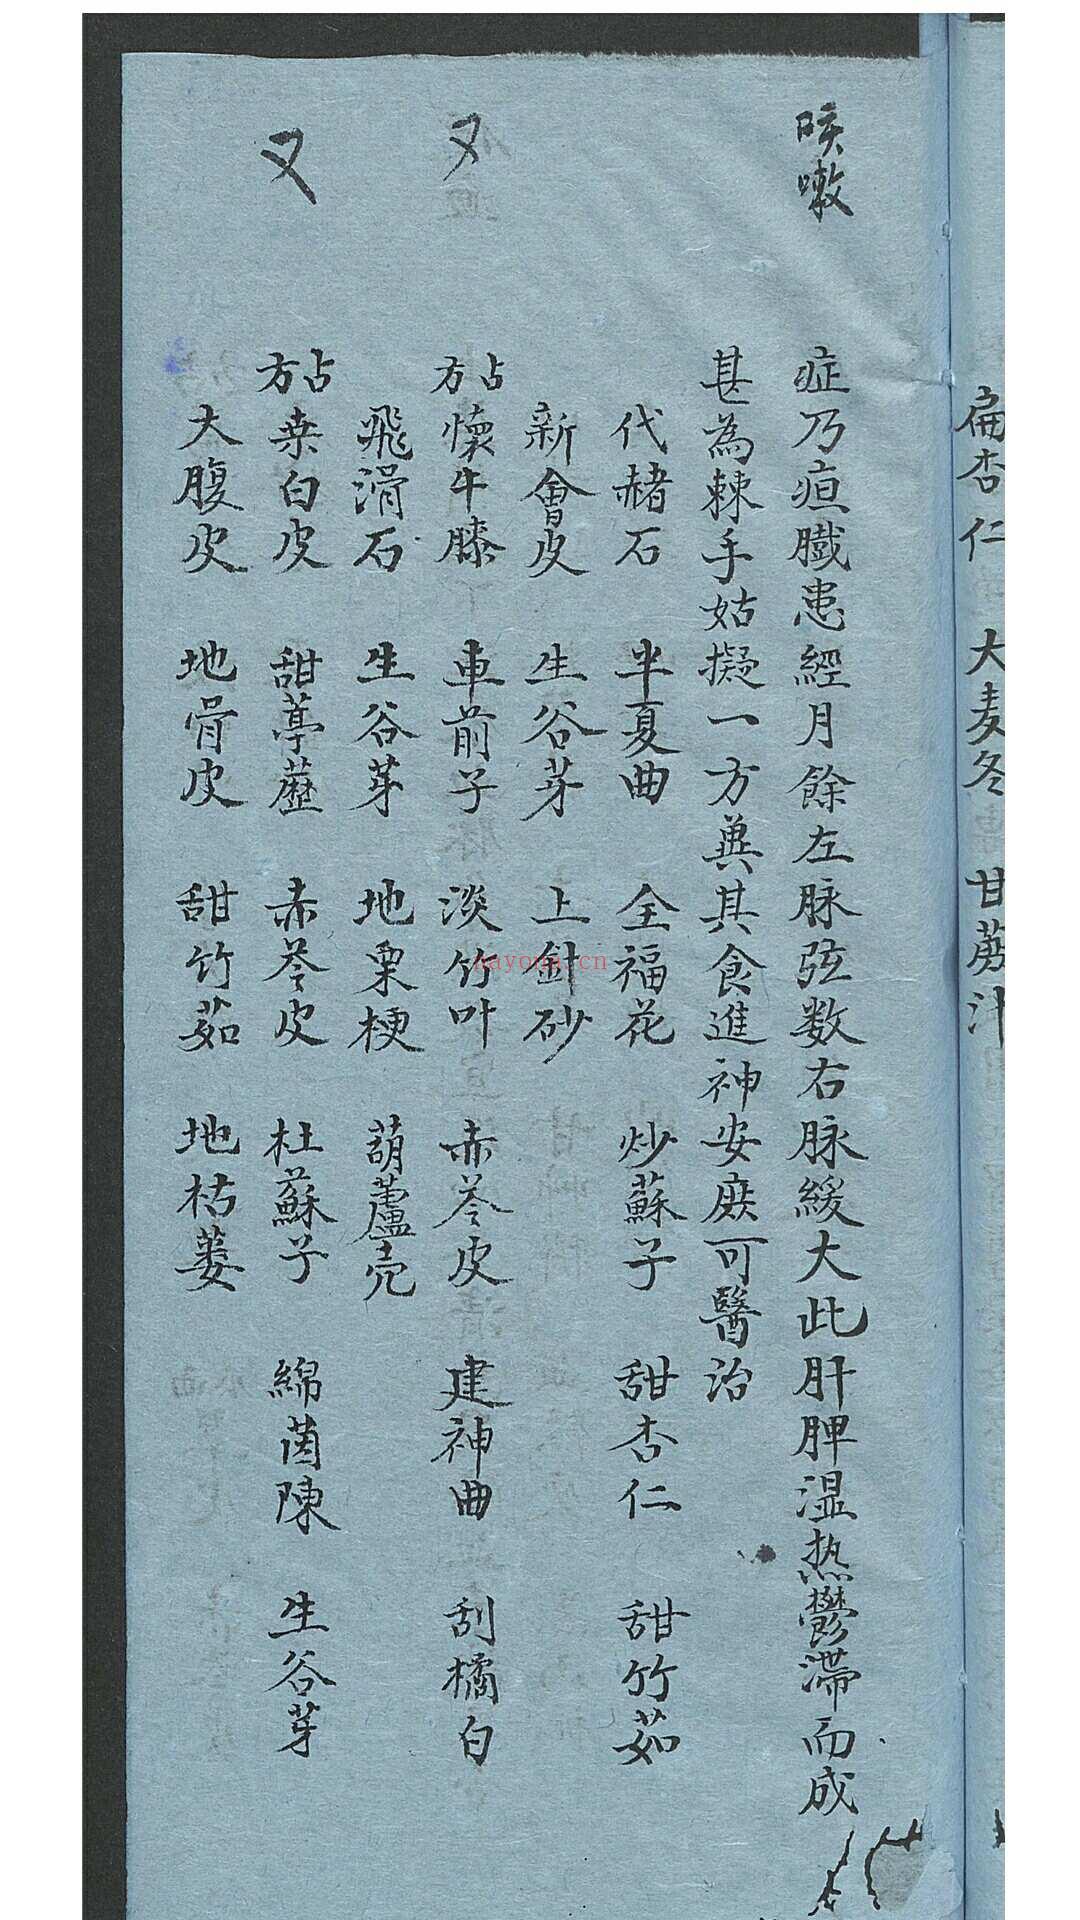 扁杏仁 大麦冬 甘蔗汁
咳嗽
症乃疸臌患經月餘左脉弦数右脉緩大此肝脾温热鬱滞而成
甚為棘手姑擬一方兾其食進神安庻可醫治
代赭石 半夏曲 全福花 炒蘇子 甜杏仁 甜竹茹
新會皮 生谷芽 上針砂
又
占方 懷牛膝 車前子 淡竹叶 赤苓皮 建神曲 刮橘白
飛滑石 生谷芽 地栗梗 葫蘆壳
又
占方 桒白皮 甜葶藶 赤苓皮 杜蘇子 綿茵陳 生谷芽
大腹皮 地骨皮 甜竹茹 地枯蒌
kayoua.cn